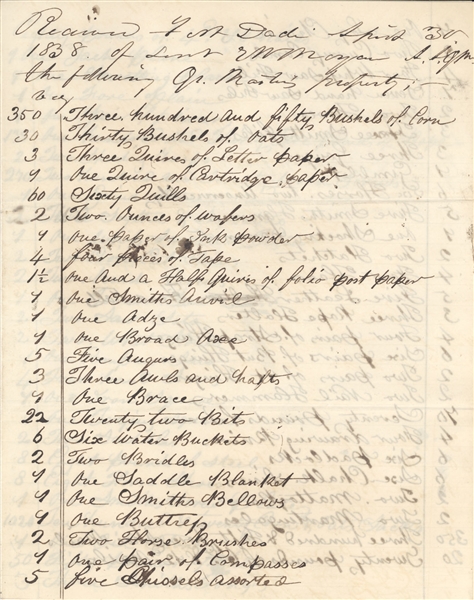 Received Fort Dade April 30
1838. of Lieut E W Morgan A. A. Q. M
the following Qr. Masters property:
350 Three hundred and fifty Bushels of Corn
30 Thirty Bushels of Oats
3 Three Quires of Letter paper
1 One Quire of Cartridge paper
60 Sixty Quills
2 Two Ounces of wafers
1 One paper of Ink powder
4 four pieces of Tape
1½ one and a Half Quires of folio post paper
1 One Smiths Anvil
1 One Adze
1 One Broad Axe
5 Five Augurs
3 Three Awls and hafts
1 One Brace
22 Twenty two Bits
6 Six Water Buckets
2 Two Bridles
1 One Saddle Blanket
1 One Smiths Bellows
1 One Buttress
2 Two Horse Brushes
1 One pair of Compasses
5 five Chissels assorted